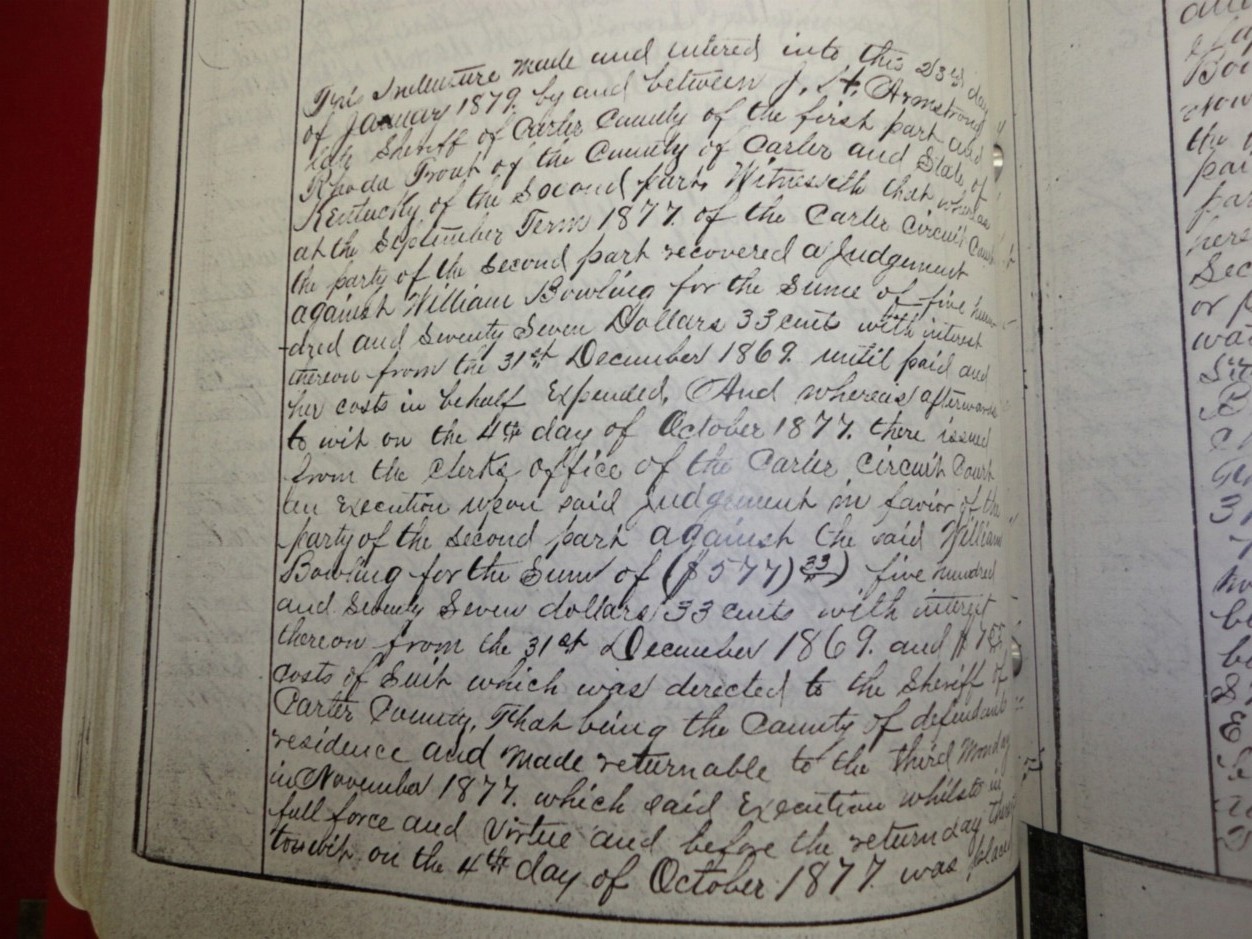 This Indenture made and entered into this 23rd day
of January 1879. by and between J. H. Armstrong
late Sheriff of Carter County of the first part and
Rhoda Prout of the County of Carter and State of
Kentucky of the Second part, Witnesseth that whereas
at the September Term 1877. of the Carter Circuit Court
the party of the Second part recovered a Judgement
against William Bowling for the Sume of five hun
-dred and Seventy Seven Dollars 33 cents with interest
thereon from the 31st December 1869. until paid and
her costs in behalf Expended, And whereas afterwards
to wit on the 4th day of October 1877. there issued
from the Clerks office of the Carter Circuit Court
an Execution upon said Judgement in favior of the
party of the Second part against the said William
Bowling for the Sum of ($577) 33) five hundred
and Seventy Seven dollars 33 cents with interest
thereon from the 31st December 1869. and
costs of Suit which was directed to the Sheriff of
Carter County, That being the County of defendants
residence and made returnable to the third Monday
in November 1877. which said Execution whilst in
full force and virtue and before the return day
towit, on the 4th day of October 1877. was